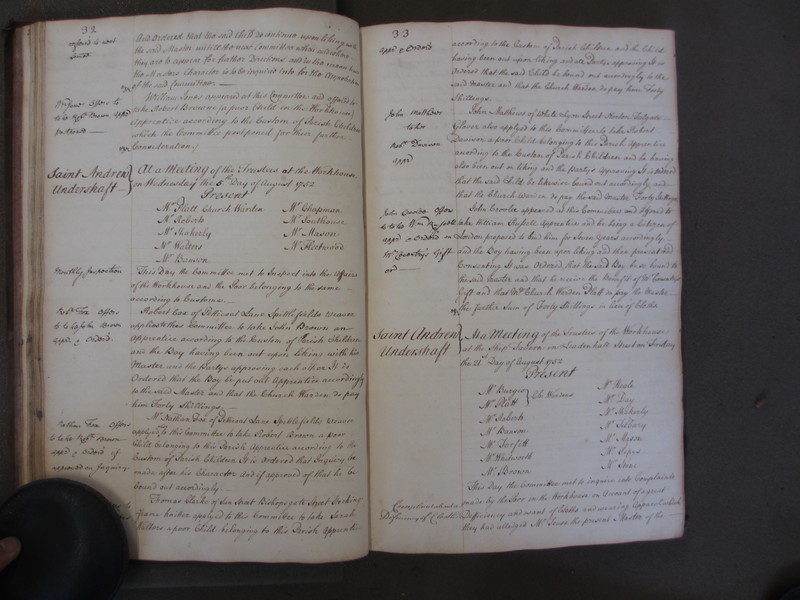 32
And Ordered that the said Child so taken upon liking with
the said Master untill the next Committee when and where
they are to appear for further Directions and in the mean time
the Masters Character is to be inquired into for the Approbation
of the said Committee
William Jones appeared at this Committee and offered to
take Robert Brewon (a poor Child in the Workhouse)
Apprentice according to the Custom of Parish Children
which the Committee postponed for their further
Consideration
Saint Andrew
Undershaft
At a Meeting of the Trustees at the Workhouse
on Wednesday the 5th Day of August 1752
Present
Mr Platt Church Warden
Mr Chapman
Mr Roberts
Mr Southouse
Mr Stokerly
Mr Mason
Mr Walters
Mr Fleetwood
Mr Bawson
Monthly Inspection
This Day the Committee met to Inspect into the Affairs
of the Workhouse and the Poor belonging to the same
according to Custom
Robt Fox Offers
to take John Brown
appd & Ordered
Robert Fox of Petticoat Lane Spittlefields Weaver
applied to this Committee to take John Brown an
Apprentice according to the Custom of Parish Children
and the Boy having been out upon liking with his
Master and the Partys approving each other It is
Ordered that the Boy be put out Apprentice accordingly
to the said Master and that the Church Warden do pay
him Forty Shillings
Nathan Fox Offers
to take Robt Brown
appd & Ordered if
approved on Inquiry
Mr Nathan Fox of Petticoat Lane Spittlefields Weaver
applyed to this Committee to take Robert Brown a poor
Child belonging to this Parish Apprentice according to the
Custom of Parish Children It is Ordered that Inquiry be
made after his Character and if approved of that he be
bound out accordingly
Thomas Clarke of Sun Street Bishopsgate Street Stocking
Frame knitter applyed to this Committee to take Sarah
Walters a poor Child belonging to this Parish Apprentice
33
appd & Ordered
according to the Custom of Parish Children and the Child
having been out upon liking and the Partys approving It is
Ordered that the said Child be bound out accordingly to the
said Master and that the Church Warden do pay him Forty
Shillings
John Matthews
to take
Robt Dawson
appd
John Mathews of White Lyon Street Norton Falgate
Glover also applyed to this Committee to take Robert
Dawson a poor Child belonging to this Parish Apprentice
according to the Custom of Parish Children and he having
also been out on liking and the Partys approving It is Ordered
that the said Child be likewise bound out accordingly and
that the Church Warden do pay the said Master Forty Shillings
John Crowder appeared at this Committee and offered to
take William Apprentice and he being a Citizen of
London proposed to bind him for Seven years accordingly
and the Boy having been upon liking and then present and
Consenting It was Ordered that the said Boy be so bound to
the said Master and that he receive the Benefit of Mr
Gift and that Mr Church Warden Platt do pay the Master
the further Sum of Forty Shillings in lieu of Cloths
Saint Andrew
Undershaft
At a Meeting of the Trustees of the Workhouse
at the Ship Tavern in Leadenhall Street on Friday
the 21st Day of August 1752
Present
Mr Burgis
Mr Platt
Ch. Wardens
Mr Neale
Mr Roberts
Mr Day
Mr Bawson
Mr Stokerly
Mr Torfitt
Mr Tilbury
Mr Whitworth
Mr Mason
Mr Brewon
This Day the Committee met to inquire into Complaints
made by the Poor in the Workhouse on account of a great
Complaint about a
Deficiency of Cloaths
Deficiency and want of Cloths and wearing Apparel which
they had alledged Mr the present Master of the